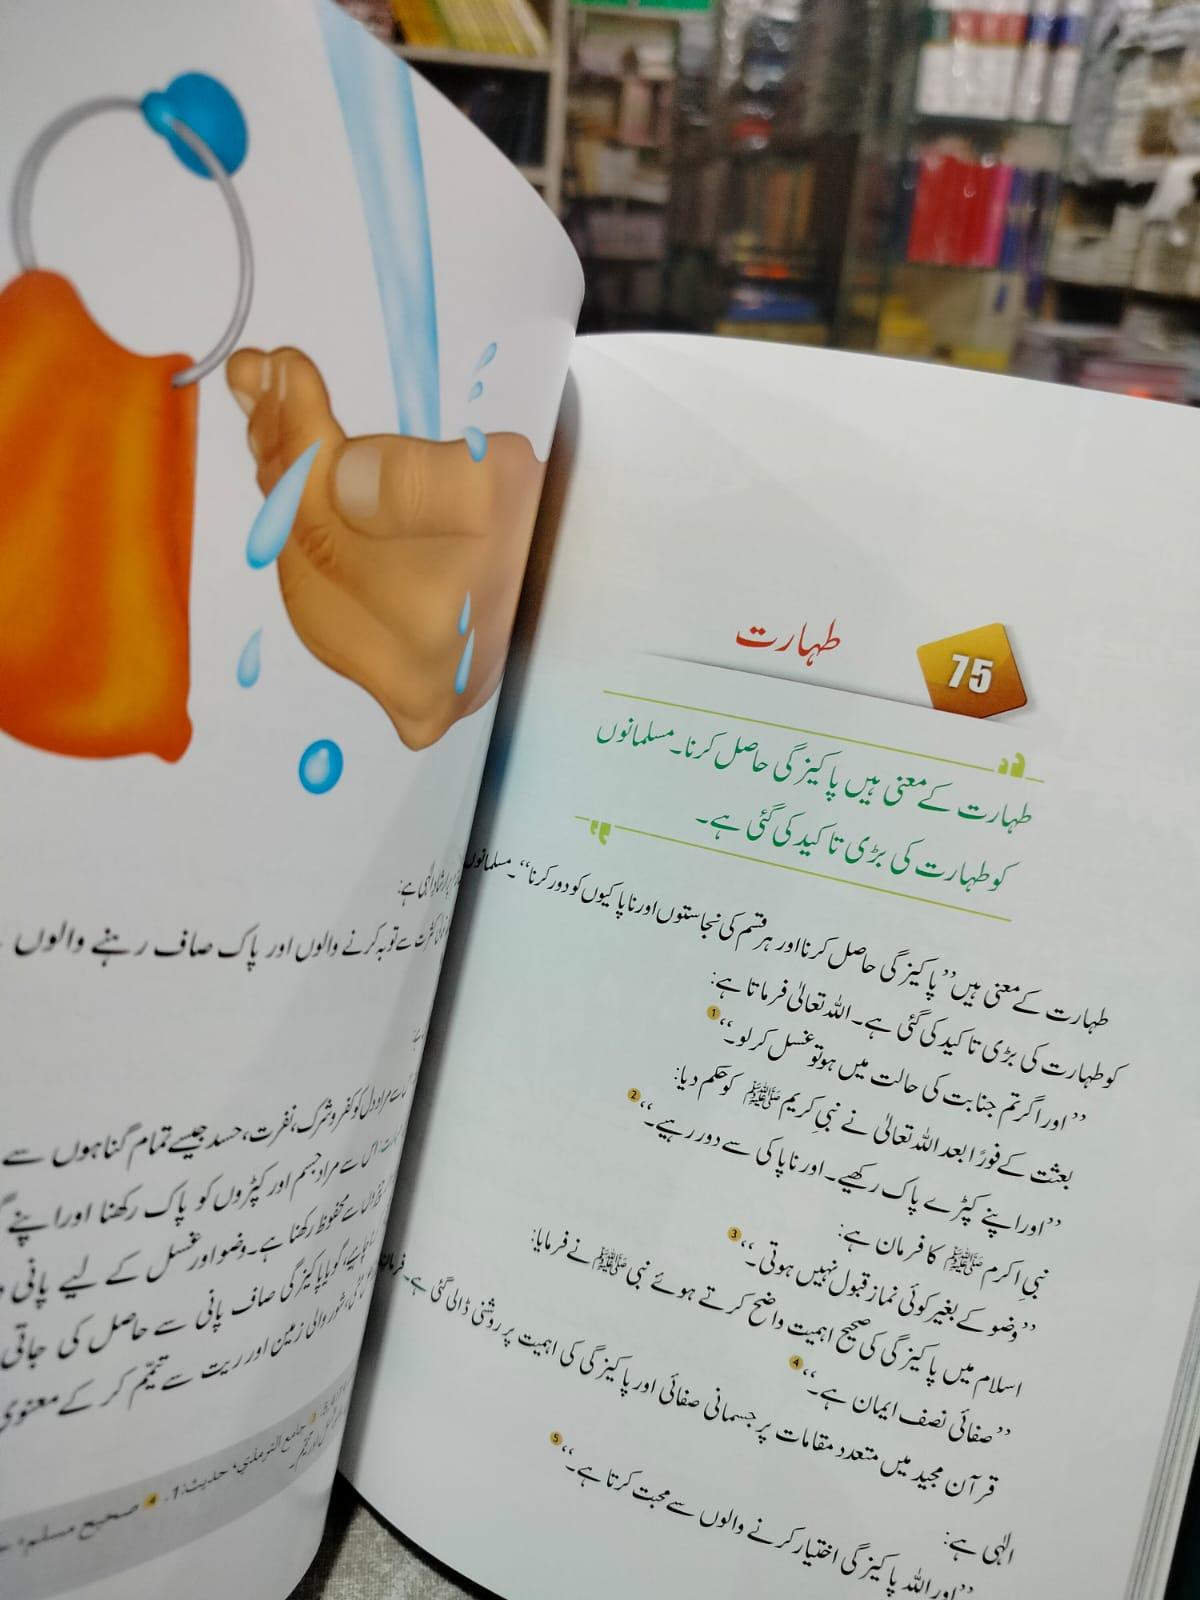 75
طہارت
طہارت کے معنی ہیں پاکیزگی حاصل کرنا۔ مسلمانوں
کو طہارت کی بڑی تاکید کی گئی ہے۔
طہارت کے معنی ہیں ”پاکیزگی حاصل کرنا اور ہر قسم کی نجاستوں اور ناپاکیوں کو دور کرنا“۔ مسلمانوں
کو طہارت کی بڑی تاکید کی گئی ہے۔ اللہ تعالیٰ فرماتا ہے:
”اور اگر تم جنابت کی حالت میں ہو تو غسل کر لو۔“ 1
بعثت کے فورًا بعد اللہ تعالیٰ نے نبیِ کریم ﷺ کو حکم دیا:
”اور اپنے کپڑے پاک رکھیے۔ اور ناپاکی سے دور رہیے۔“ 2
نبیِ اکرم ﷺ کا فرمان ہے:
”وضو کے بغیر کوئی نماز قبول نہیں ہوتی۔“ 3
اسلام میں پاکیزگی کی صحیح اہمیت واضح کرتے ہوئے نبی ﷺ نے فرمایا:
”صفائی نصف ایمان ہے۔“ 4
قرآن مجید میں متعدد مقامات پر جسمانی صفائی اور پاکیزگی کی اہمیت پر روشنی ڈالی گئی ہے۔ فرمان
الٰہی ہے:
”اور اللہ پاکیزگی اختیار کرنے والوں سے محبت کرتا ہے۔“ 5
ارشادِ الٰہی ہے:
کثرت سے توبہ کرنے والوں اور پاک صاف رہنے والوں
سے مراد دل کو کفر و شرک، نفرت، حسد جیسے تمام گناہوں سے
اس سے مراد جسم اور کپڑوں کو پاک رکھنا اور اپنے
سے محفوظ رکھنا ہے۔ وضو اور غسل کے لیے پانی
گویا پاکیزگی صاف پانی سے حاصل کی جاتی
شور والی زمین اور ریت سے تیمّم کر کے معنوی
3 جامع الترمذي، حديث: 1. 4 صحيح مسلم،